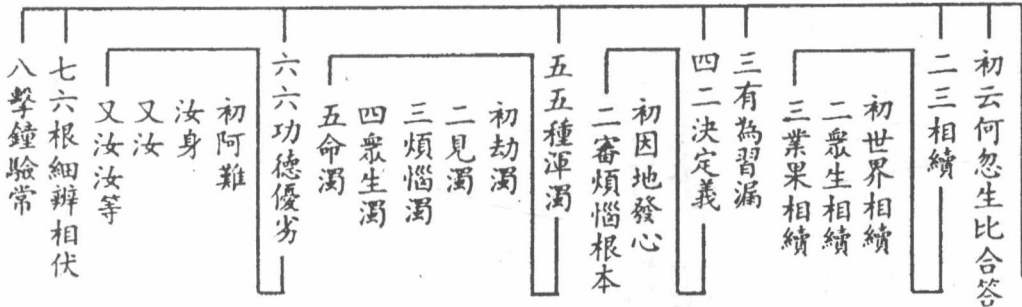 初云何忽生比合答
二三相續
初世界相續
二衆生相續
三業果相續
三有為習漏
四二決定義
初因地發心
二審煩惱根本
五五種渾濁
初劫濁
二見濁
三煩惱濁
四衆生濁
五命濁
六六功德優劣
初阿難
汝身
又汝
又汝汝等
七六根細辨相伏
八擊鐘驗常